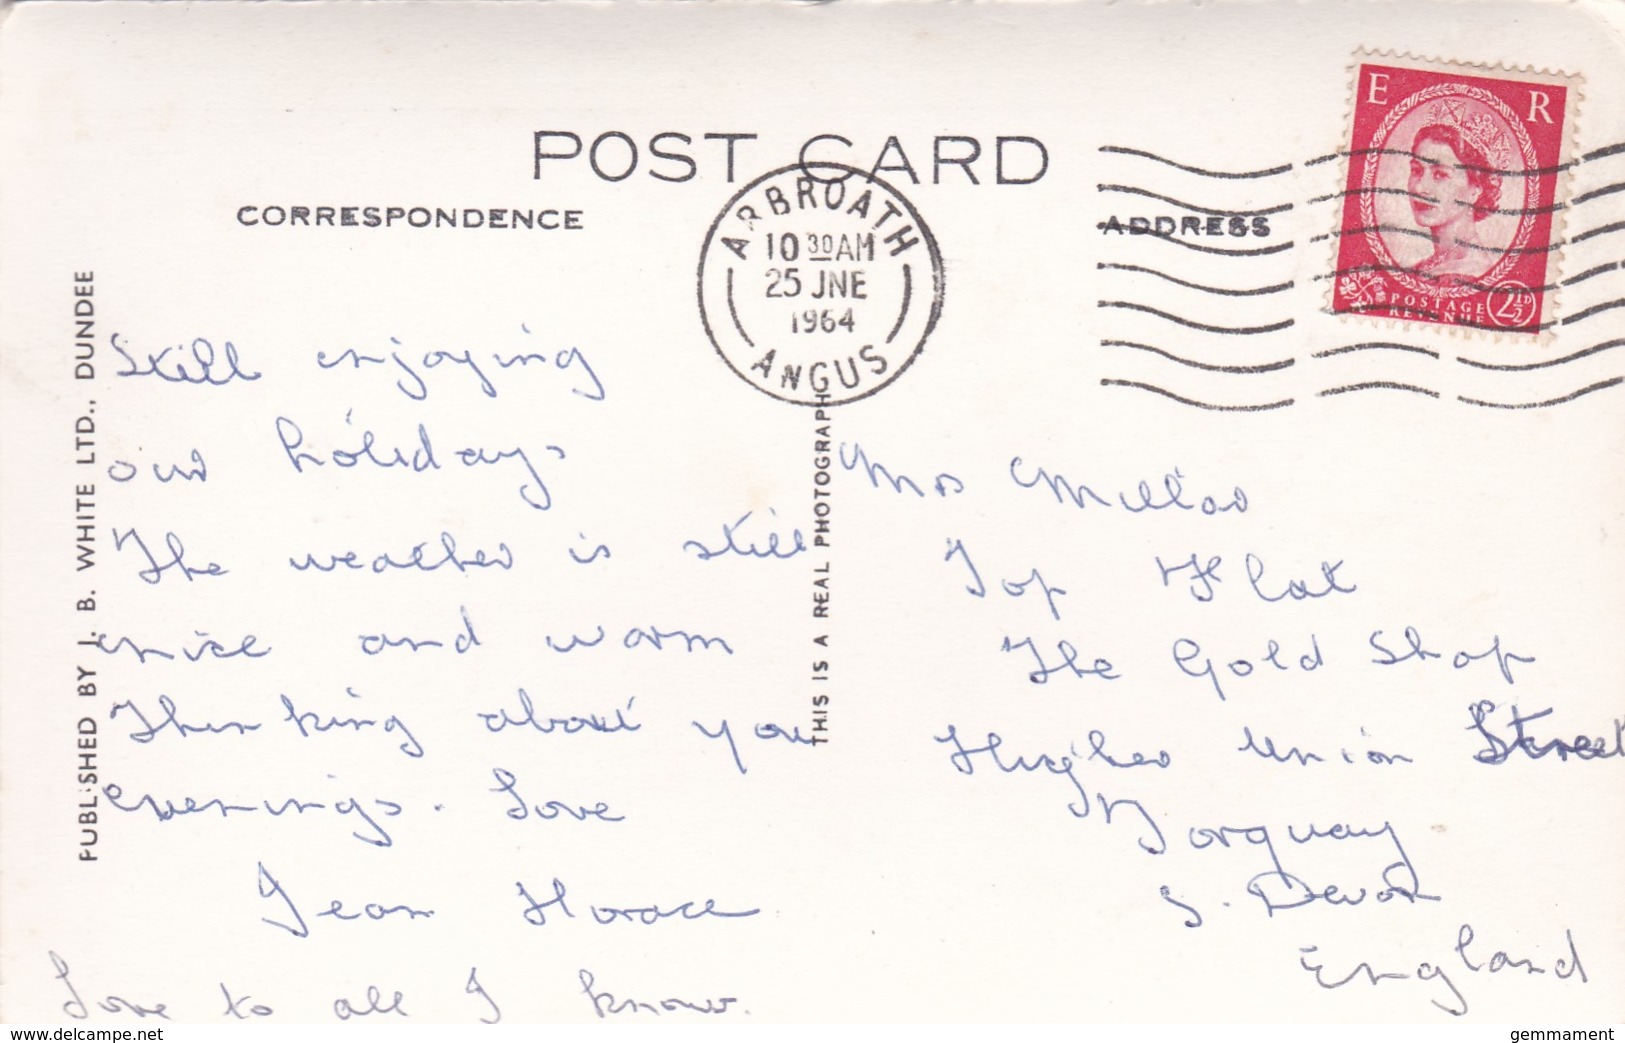 POST CARD
CORRESPONDENCE
ADDRESS
E R
POSTAGE
REVENUE
2½D
ARBROATH
10 30 AM
25 JNE
1964
ANGUS
PUBLISHED BY J. B. WHITE LTD., DUNDEE
THIS IS A REAL PHOTOGRAPH
Still enjoying
our holidays
The weather is still
nice and warm
Thinking about you
evenings. Love
Jean Horace
Love to all I know.
Mrs Millar
Top Flat
The Gold Shop
Higher Union Street
Torquay
S. Devon
England
www.delcampe.net
gemmament